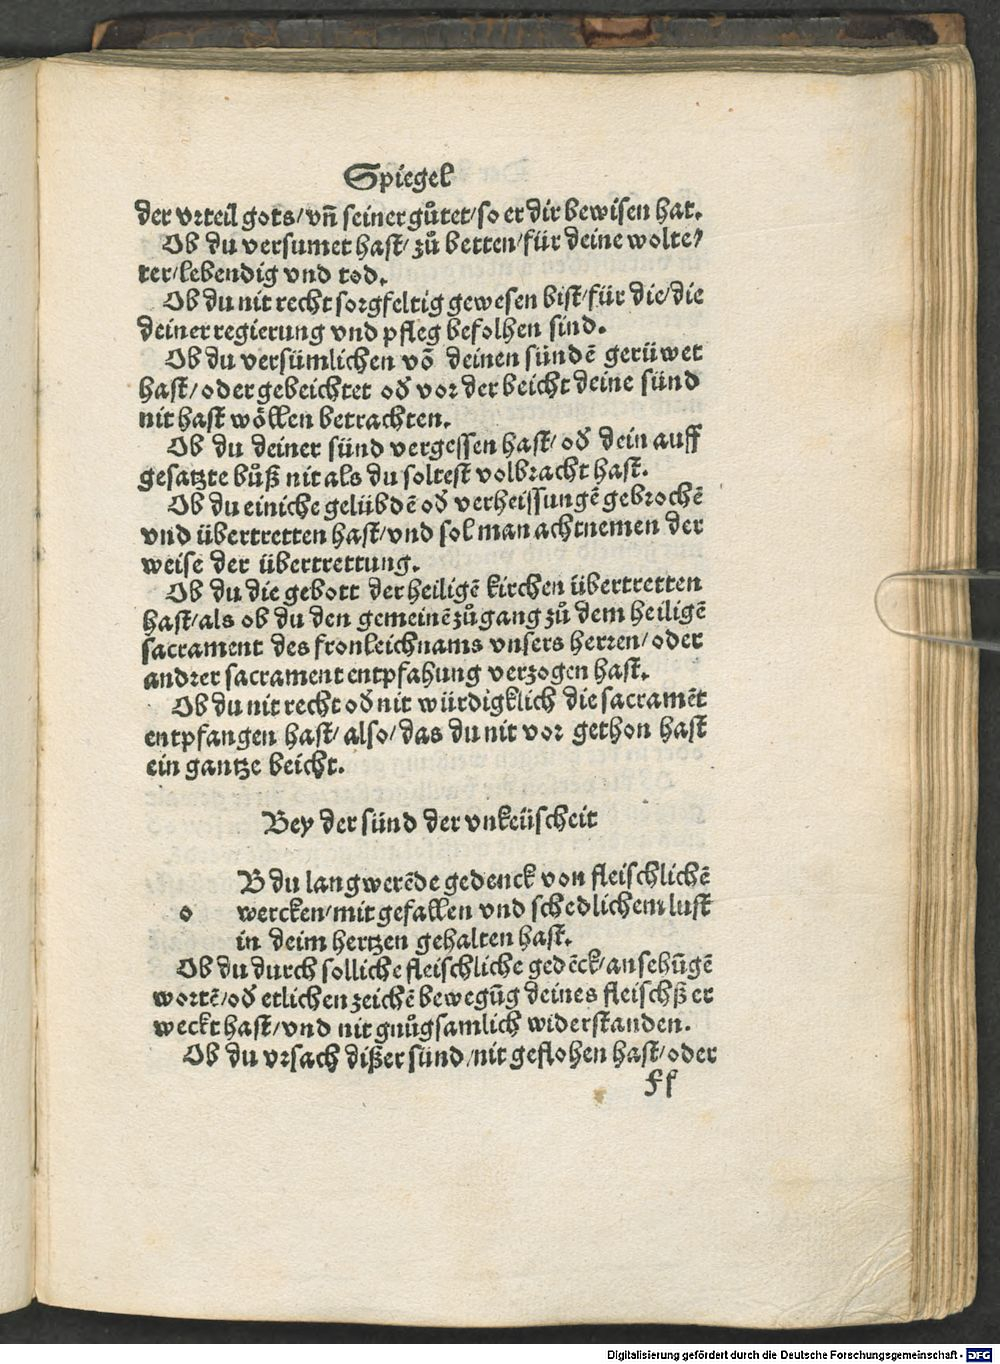 Spiegel
der vrteil gots/vn̄ seiner gůtet/so er dir bewisen hat.
Ob du versumet hast/zů betten/für deine wolte/
ter/lebendig vnd tod.
Ob du nit recht sorgfeltig gewesen bist/für die/die
deiner regierung vnd pfleg befolhen sind.
Ob du versümlichen vō deinen sündē gerüwet
hast/oder gebeichtet oď vor der beicht deine sünd
nit hast wöllen betrachten.
Ob du deiner sünd vergessen hast/oď dein auff
gesatzte bůß nit als du soltest volbracht hast.
Ob du einiche gelübdē oď verheissungē gebrochē
vnd übertretten hast/vnd sol man achtnemen der
weise der übertrettung.
Ob du die gebott der heiligē kirchen übertretten
hast/als ob du den gemeinē zůgang zů dem heiligē
sacrament des fronleichnams vnsers herren/oder
andrer sacrament entpfahung verzogen hast.
Ob du nit recht oď nit würdigklich die sacramēt
entpfangen hast/also/das du nit vor gethon hast
ein gantze beicht.
Bey der sünd der vnkeüscheit
B du langwerēde gedenck von fleischlichē
o wercken/mit gefallen vnd schedlichem lust
in deim hertzen gehalten hast.
Ob du durch solliche fleischliche gedēck/ansehūgē
wortē/oď etlichen zeichē bewegūg deines fleischß er
weckt hast/vnd nit gnůgsamlich widerstanden.
Ob du vrsach dißer sünd/nit geflohen hast/oder
ff
Digitalisierung gefördert durch die Deutsche Forschungsgemeinschaft - DFG